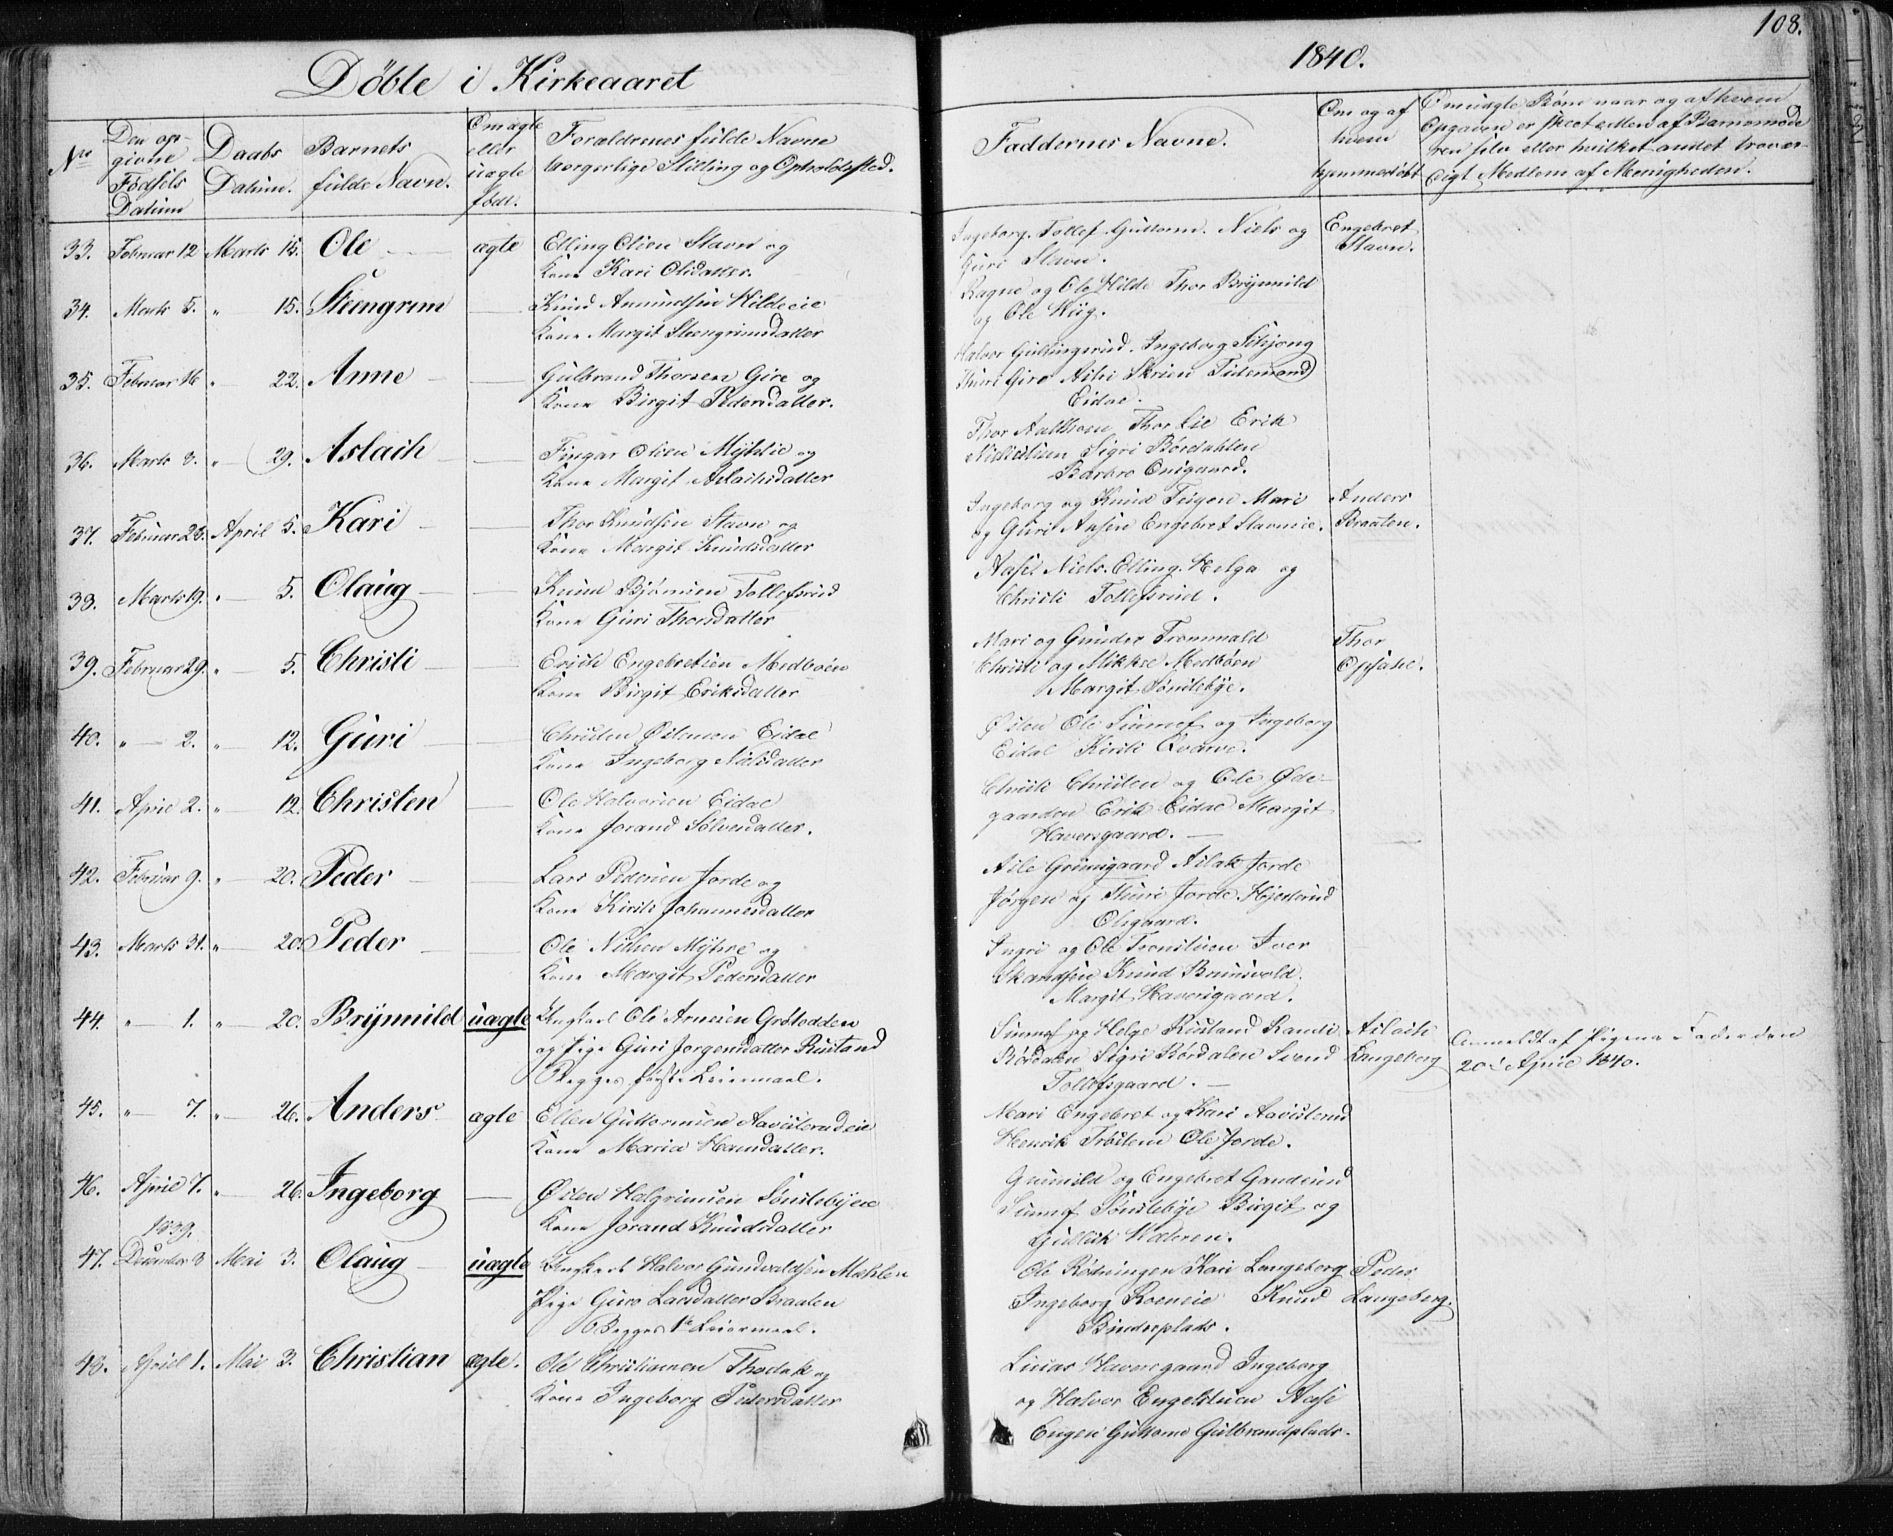 108.
Döbte i Kirkeaaret
1840.
No
Den op-
givne
Fødsels
Datum
Daabs
Datum.
Barnets
fulde Navn.
Om ægte
eller
uægte
født.
Forældrenes fulde Navne
borgerlige Stilling og Opholdssted.
Faddernes Navne.
Om og af
hvem
hjemmedøbt
Om uægte Børn naar og af hvem
Opgaven er skeet enten af Barnemode
ren selv eller hvilket andet trovær-
digt Medlem af Menigheden.
33. Februar 12 Marts 15. Ole ægte Elling Olsen Stavn og
Kone Kari Olsdatter.
Ingeborg. Tollef Guttorm. Niels og
Guri Stavn.
Engebret
Stavn.
34. Marts 5. " 15. Steengrim Knud Amundsen Hildeeie
Kone Margit Steengrimsdatter
Ragne og Ole Hilde Thor Brynnild
og Ole Wiig.
35. Februar 16 " 22. Anne Gulbrand Thorsen Gire og
Kone Birgit Pedersdatter.
Halvor Gullingsrud. Ingeborg
Thuri Gire Tidemand
Eidal.
36. Marts 8. " 29. Aslach Olsen Myhlie og
Kone Margit Aslachsdatter
Thor Thor Lie Erik
Sigri Børdahlen
Barbro
37. Februar 23. April 5. Kari Thor Knudsen Stavn og
Kone Margit Knudsdatter
Ingeborg og Knud Teigen Mari
og Guri Engebret Stavneie.
Anders
Braaten.
38. Marts 19. " 5. Olaug Knud Bjørnsen Tollefsrud
Kone Guri Thorsdatter
Niels. Elling. Helga og
Christi Tollefsrud.
39. Februar 29. " 5. Christi Erich Engebretsen Medboen
Kone Birgit Eriksdatter
Mari og Gunder Trommald
Christi og Mikkel Medbøen
Margit Søndrebye.
Thor
Opsahl.
40. " 2. " 12. Guri Christen Østensen Eidal
Kone Ingeborg Nilsdatter
Østen Ole Sunnef og Ingeborg
Eidal Kirsti Qvarve.
41. April 2. " 12. Christen Ole Halvorsen Eidal
Kone Jorand Sølvesdatter.
Christi Christen og Ole Øde-
gaarden Erik Eidal Margit
Haversgaard.
42. Februar 9. " 20. Peder Lars Pedersen Jorde og
Kone Kirsti Johannesdatter
Grimsgaard Aslak Jorde
Jørgen og Thuri Jorde
Olsgaard.
43. Marts 31. " 20. Peder Ole Nilsen Myhre og
Kone Margit Pedersdatter
Ingri og Ole Iver
Knud
Margit Haversgaard.
44. " 1. " 20. Brynnild uægte Ungkarl Ole Arnesen Grøtodden
og Pige Guri Jørgensdatter Rustand
Begges første Leiermaal.
Sunnef og Helge Rustand Randi
Børdalen Sigri Børdalen Svend
Tollefsgaard.
Aslach
Langeberg
Anmeldt af Pigens Fader den
20de April 1840.
45. " 7. " 26. Anders ægte Ellen Guttormsen Aavestrudeie
Kone Maria Hansdatter.
Mari Engebret og Kari Aavestrud
Henrik Trøstem Ole Jorde.
46. April 7. " 26. Ingeborg Østen Halgrimsen Søndrebyeie
Kone Jorand Knudsdatter
Gunnild og Engebret Gandrud
Sunnef Søndrebye Birgit og
Gullik
1839.
47. December 8 Mai 3. Olaug uægte Ungkarl Halvor Gundvaldsen Mæhlen
Pige Guro Larsdatter Braaten
Begges 1ste Leiermaal.
Ole Rødningen Kari Langeberg
Ingeborg Roeneie Knud
Binderplads.
Peder
Langeberg.
48. April 1. Mai 3. Christian ægte. Ole Christiansen og
Kone Ingeborg Pedersdatter
Haversgaard Ingeborg
og Halvor
Engen Guttorm Gulbrandsplads.